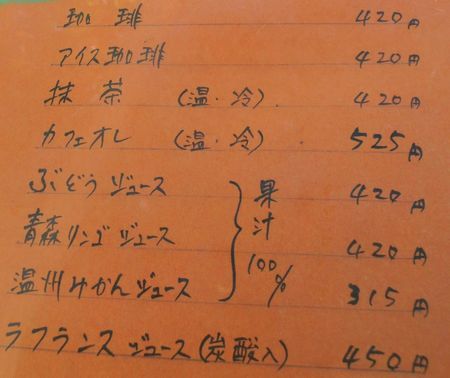 珈琲 420円
アイス珈琲 420円
抹茶 (温・冷) 420円
カフェオレ (温・冷) 525円
ぶどうジュース 果汁100% 420円
青森リンゴジュース 420円
温州みかんジュース 315円
ラフランスジュース(炭酸入) 450円